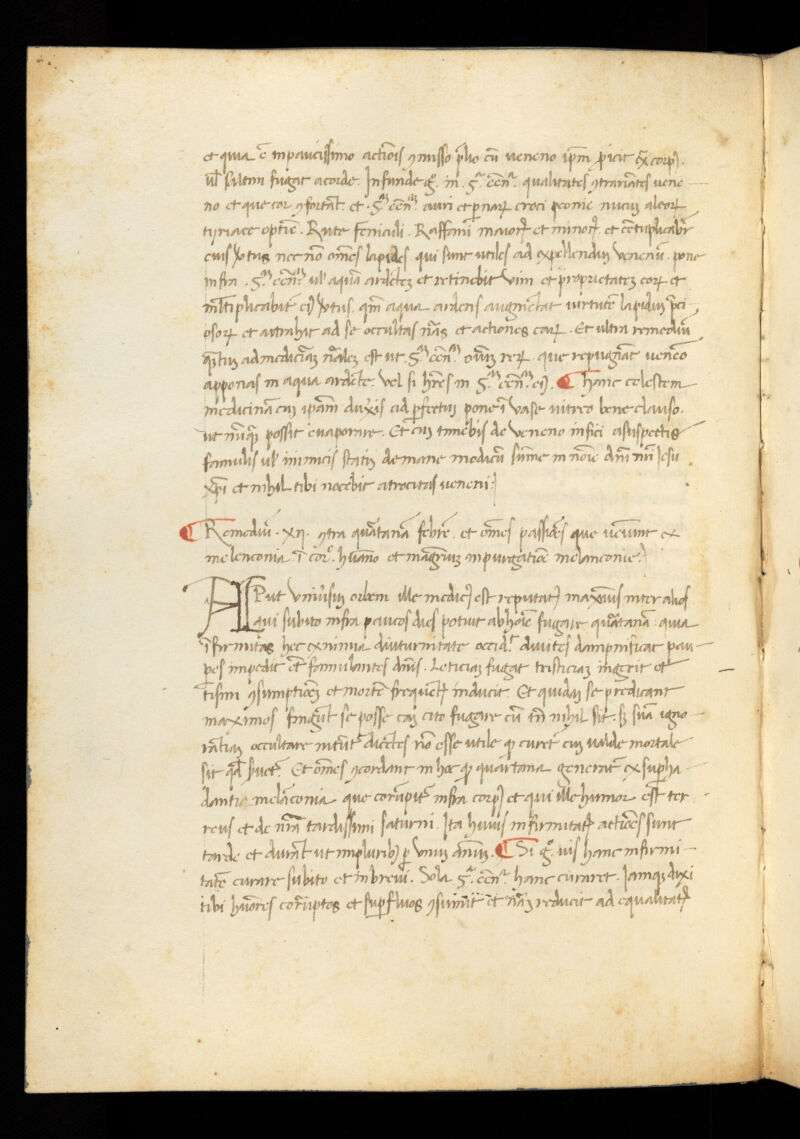 et quia ē in paucissimo actiōis ꝯmisso p̄lio cū ueneno ip̄m p̱icit ex̄ corpꝯ.
ul̄ saltim fugat acorde. Infunde gͦ. in. qͣ. eēnͣ. qualitates ꝯtrariātes uene
no et que cor ꝯfortāt. et. qͣ eēnͣ. auri et p̱narꝝ croci peonie nucis aleorꝝ
tyriace optīe. Rute feniculi. Raffani maiorꝝ et minorꝝ et cētuplicabir̄
eius virtus nec nō om̄es lapides qui sunt utiles ad expellendū uenenū. pone
infra. qͣ. eēnͣ. ul̄ aquā ardētē et retinebit uim et proprietatem eorꝝ et
ml̄tiplicabit̄ eiꝯ virtus. qm̄ aqua ardens augmētat uirtutē lapidum p̄ci
osorꝝ et attrahit ad se occultas nās et actiones earꝝ. Et ultra remediū
q̄tū ad medicinā nālē est ut qͣ. eēnͣ. oīum rerꝝ. que repugnāt uenēo
apponas in aqua ardēte. Vel si hr̄es in qͣ. eēnͣ eiꝯ. ¶ Hanc celestem
medicinā cū ipām duxis ad p̱fectū pone ī uase uitreo bene clauso.
ut nūqꝫ possit euaporare. Et cū timebis de ueneno infici a suspectis
famulis ul̄ inimicis statim de mane modicū sume in noīe dn̄i nr̄i Iesu
xp̄i et nihil tibi nocebit atrocitas ueneni.
¶ Remediū. xij. ꝯtra quātanā febrē. et om̄es passiōes que ueniunt ex
melenconia ī corͤ. huāno et magistriū in purgatiōe melanconie.
APut uniuersū orbem ille medicꝯ est reputatꝯ maximus inter alios
qui subito infra paucos dies potuit ab hoīe fugare quātanā. quia
īfirmitas hec ex nimia diuturnitate occidit. diuites dampnificat pau
pes impedit et famulantes dn̄is. Leticiam fugat tristiciam ingerit et
tisim ꝯsumptiōē et mortē frequēt̄ inducit. Et quidā se predicant
maximos fingūt se posse eā cito fugare cū tn̄ nihil sit. sꝫ suā igno
rātiā occultare nitūt̄ dicētes nō esse utile qꝫ curet̄ cū ualde mortale
sit Et om̄es ꝯcordant in hec qꝫ quartana generat̄ ex supha
dantia melācoia que corūpit̄ infra corpꝯ et qui ille humor est ter
reus et de nā tardissimi saturni. Ita huius infirmitatꝭ actiōes sunt
tarde et durāt ut in pluribꝫ p̱ unum annū. ¶ Si gͦ. uis hanc infirmi
tatē curare subito et in breui. Sola qͣ. eēnͣ. hanc curaret. Iamqꝫ dixi
tibi hūores corruptos et sup̱fluos ꝯsumit et nām reducit ad equalitatē